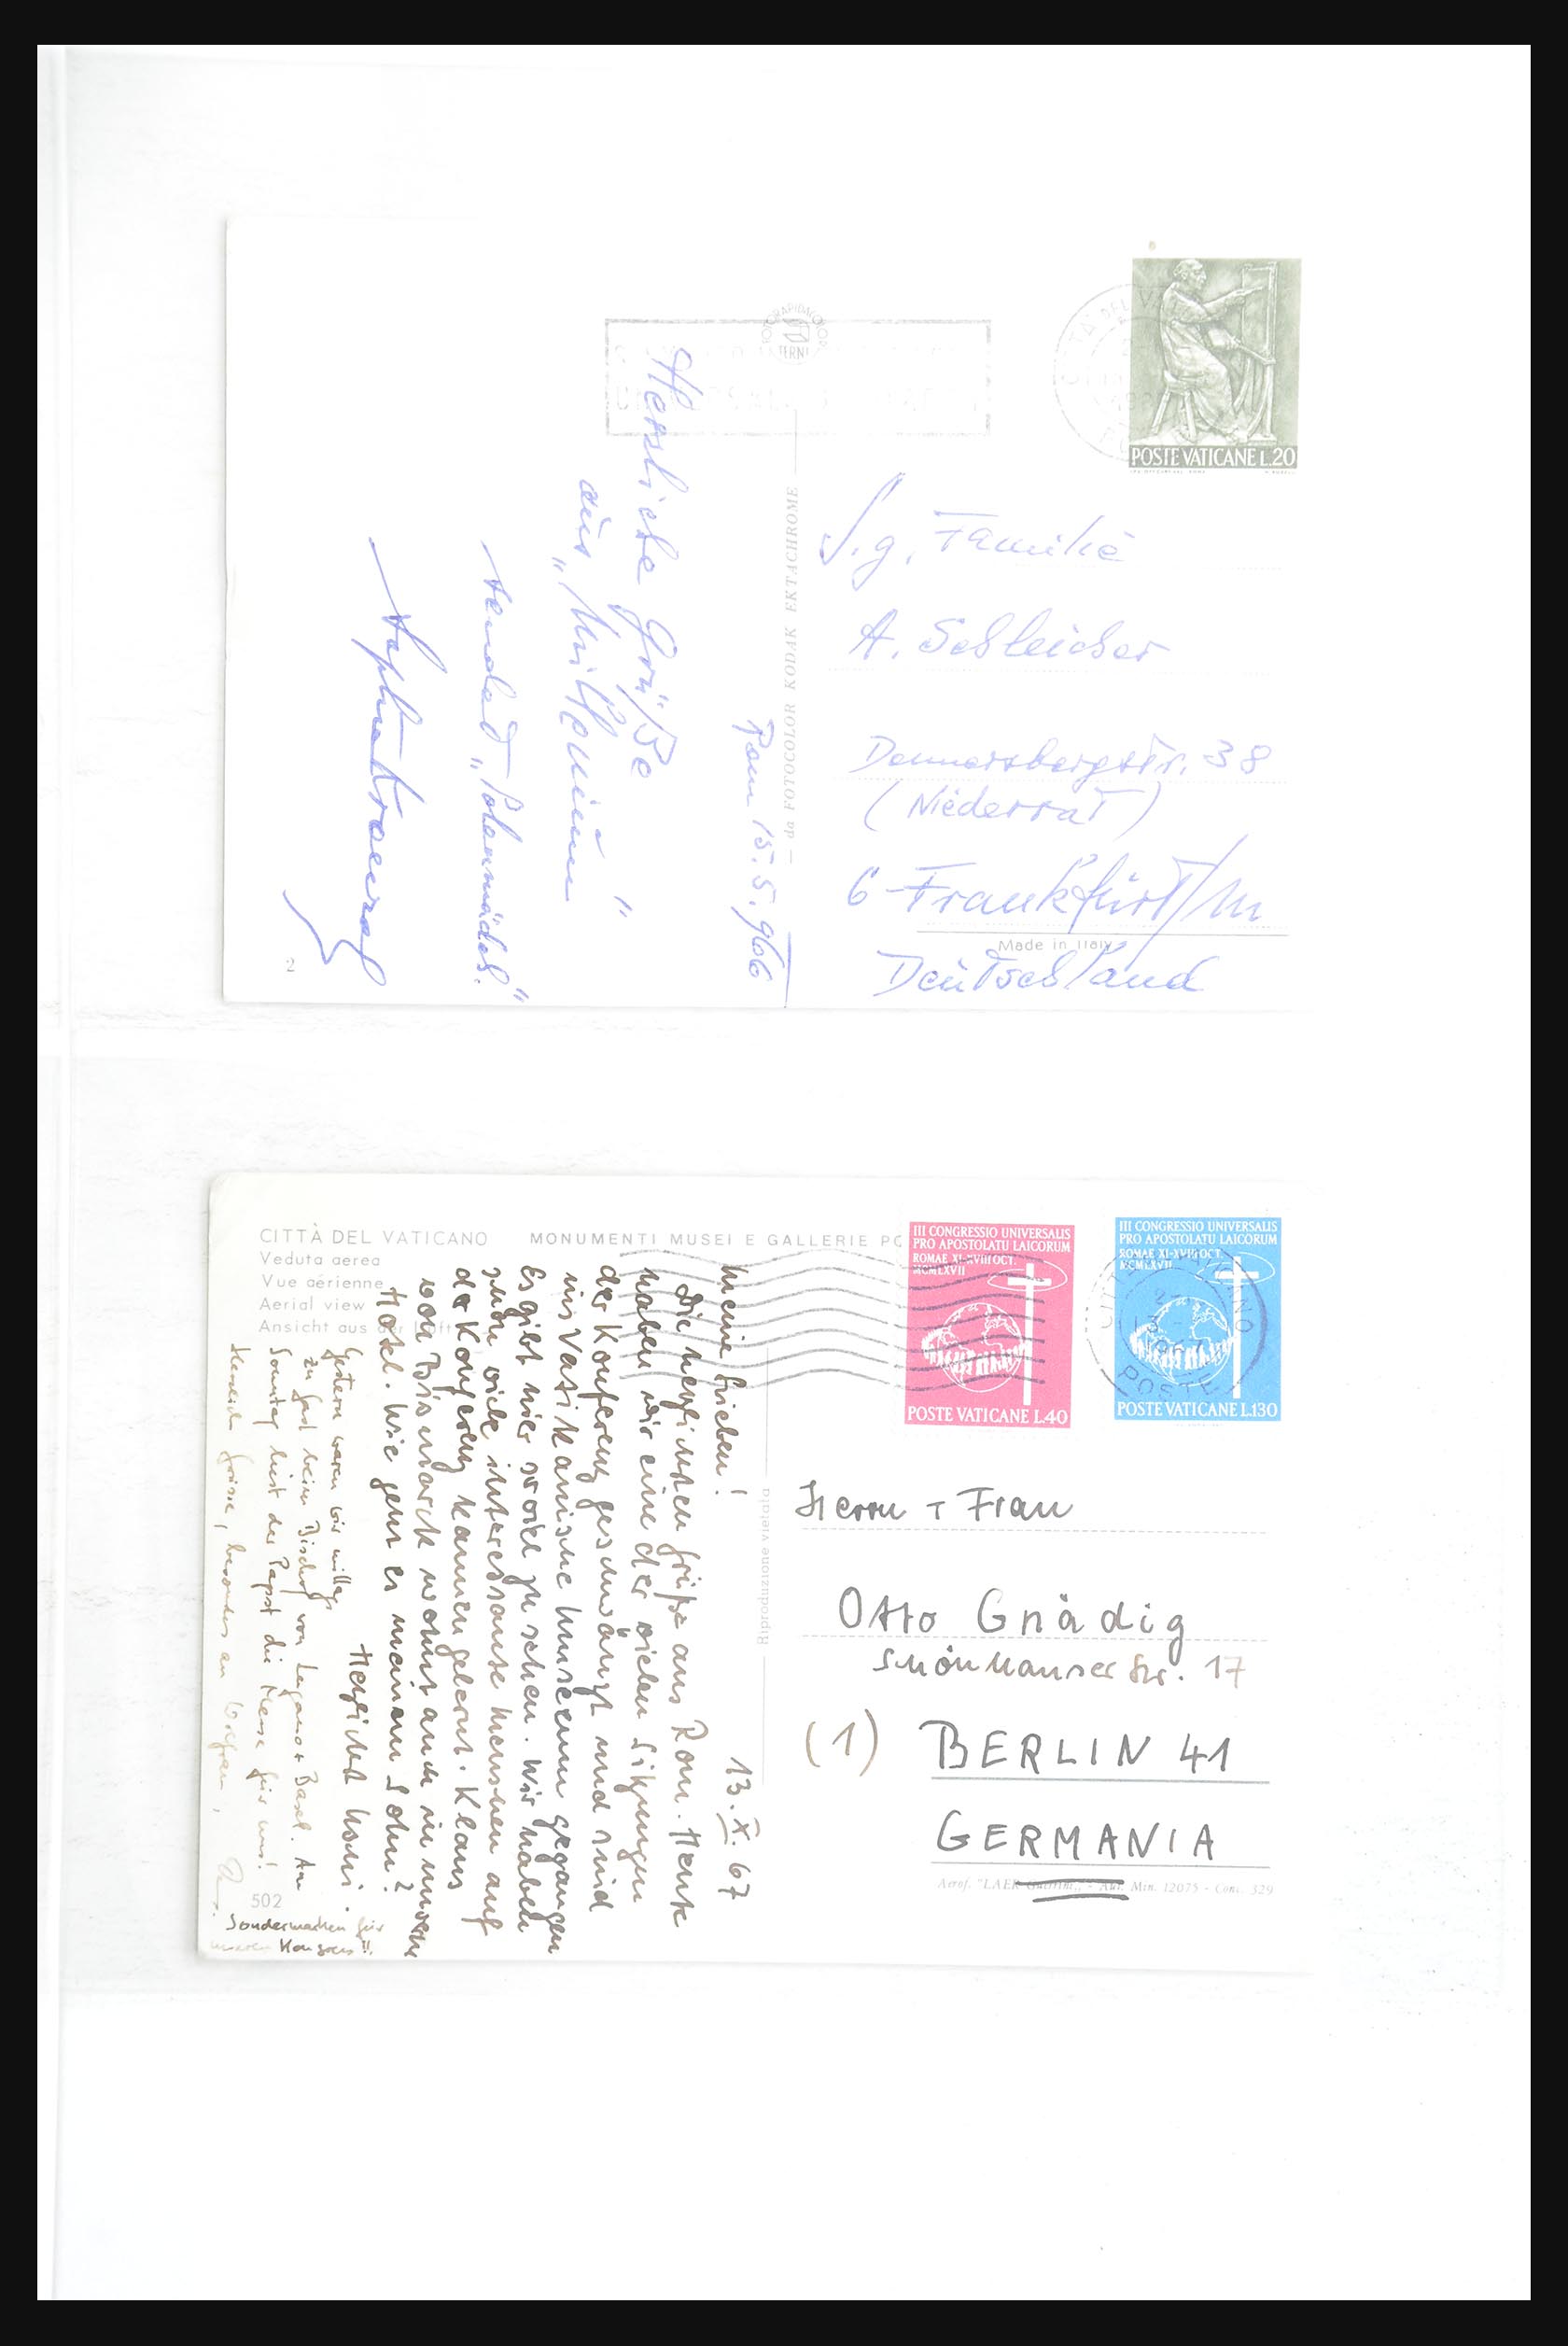 POSTE VATICANE L.20
Rom 15.5.966
Herzliche Grüße
aus
— da FOTOCOLOR KODAK EKTACHROME —
S.g. Familie
A. Schleicher
Donnersbergstr. 38
(Niederrat)
6 Frankfurt/M
Made in Italy
Deutschland
2
CITTÀ DEL VATICANO MONUMENTI MUSEI E GALLERIE PO
Veduta aerea
Vue aérienne
Aerial view
Ansicht aus der Luft
III CONGRESSIO UNIVERSALIS
PRO APOSTOLATU LAICORUM
ROMAE XI-XVIII OCT.
MCMLXVII
POSTE VATICANE L.40
III CONGRESSIO UNIVERSALIS
PRO APOSTOLATU LAICORUM
ROMAE XI-XVIII OCT.
MCMLXVII
POSTE VATICANE L.130
13.X.67
Meine Lieben!
Die herzlichsten Grüße aus Rom. Heute
haben wir eine der vielen Sitzungen
der Konferenz geschwänzt und sind
ins Vatikanische Museum gegangen
Es gibt hier soviel zu sehen. Wir haben
schon viele interessante Menschen auf
der Konferenz kennengelernt. Klaus
von Bismarck wohnt auch in unserem
Hotel. Wie geht es meinem Sohn?
Herzlichst
Gestern waren wir mittags
zu Gast beim Bischof von Lugano + Basel. Am
Sonntag liest der Papst die Messe für uns!
Herzliche Grüsse, besonders an
Sondermarken für
unseren Kongress!!
502
Riproduzione vietata
Herrn + Frau
Otto Gnädig
Schönhauser Str. 17
(1) BERLIN 41
GERMANIA
Aerof. "LAER - Aut. Min. 12075 - Conc. 329